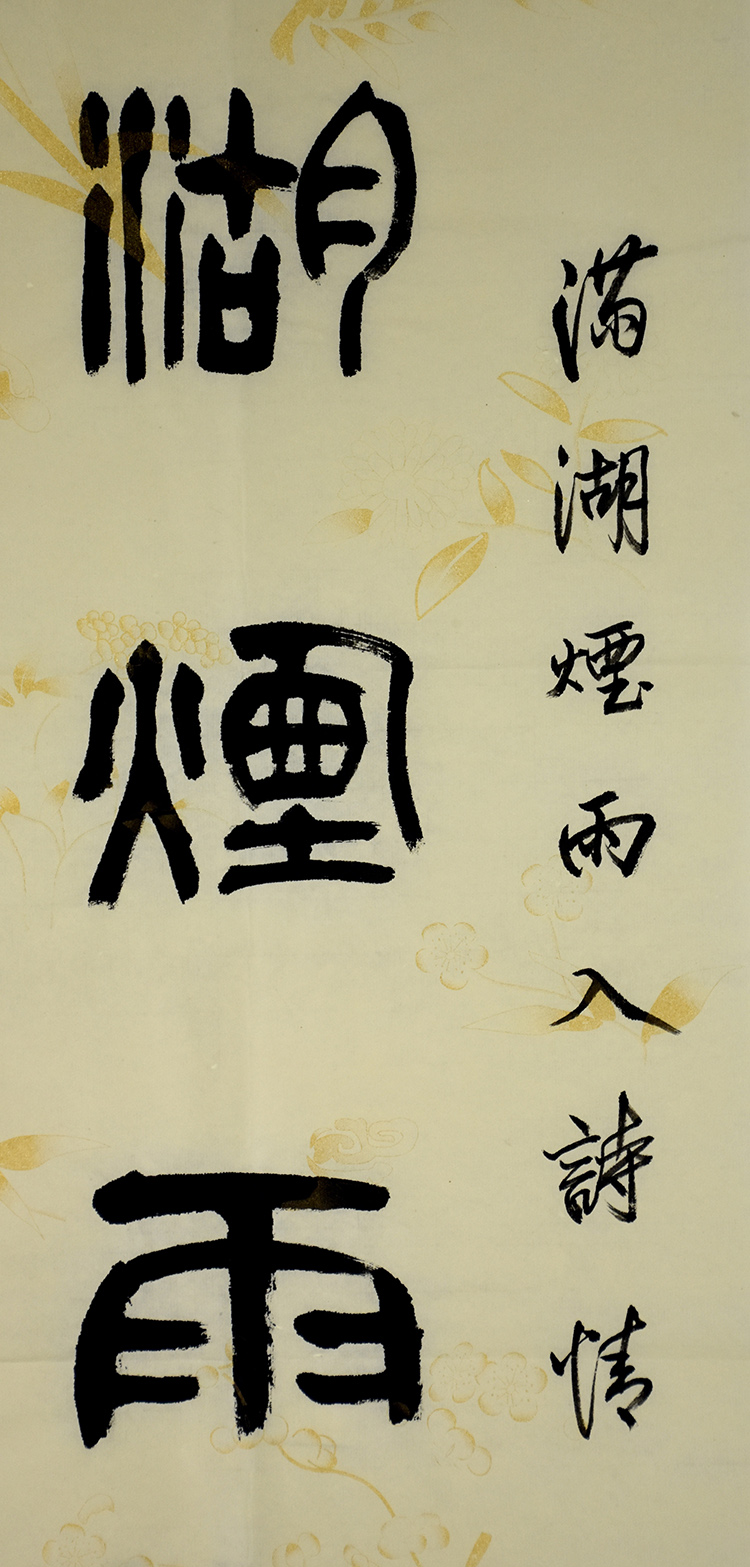 滿湖煙雨入詩情
湖煙雨